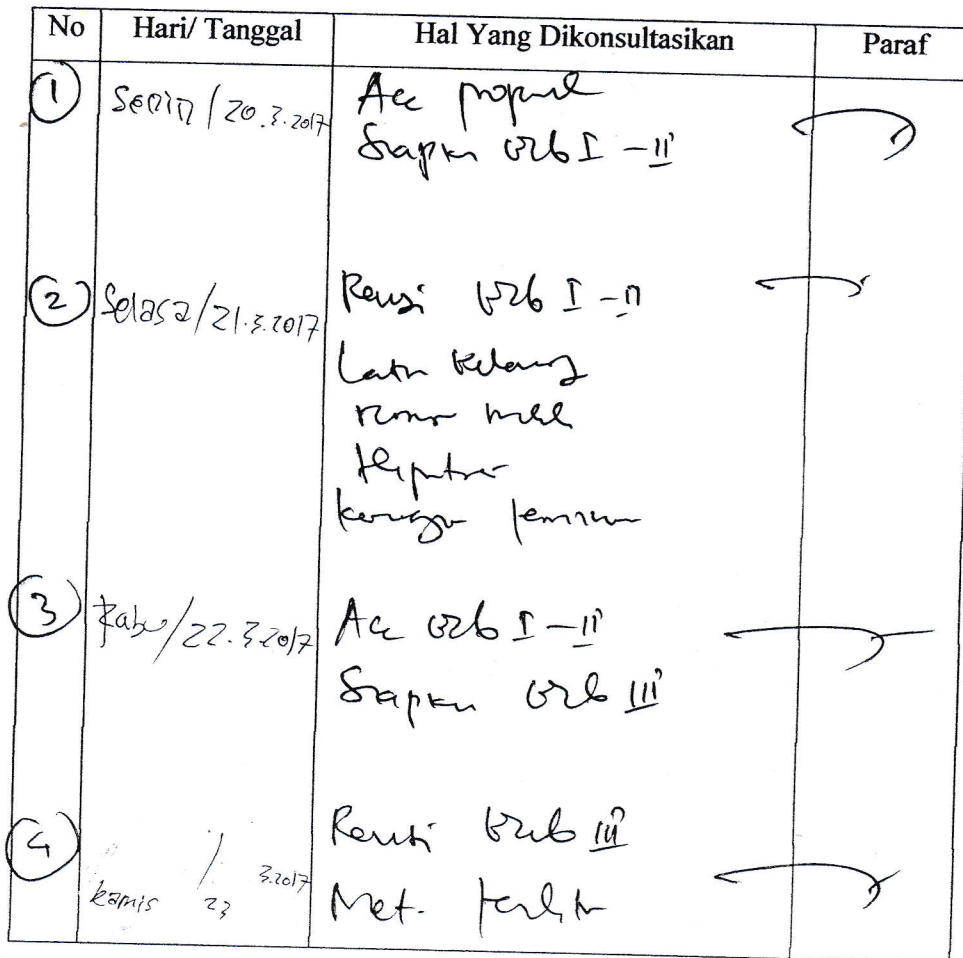 No Hari/ Tanggal Hal Yang Dikonsultasikan Paraf
1 Senin / 20.3.2017 Acc proposal
Siapkan Bab I - II
2 Selasa / 21.3.2017 Revisi Bab I - II
Latar belakang
Hipotesis
Kerangka pemikiran
3 Rabu / 22.3.2017 Acc Bab I - II
Siapkan Bab III
4 Kamis / 23 3.2017 Revisi Bab III
Met.